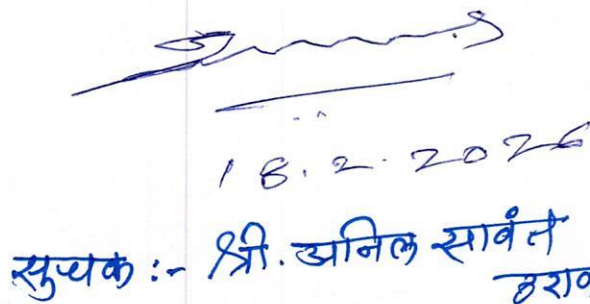 18.2.2026
सुचक :- श्री. अनिल सावंत